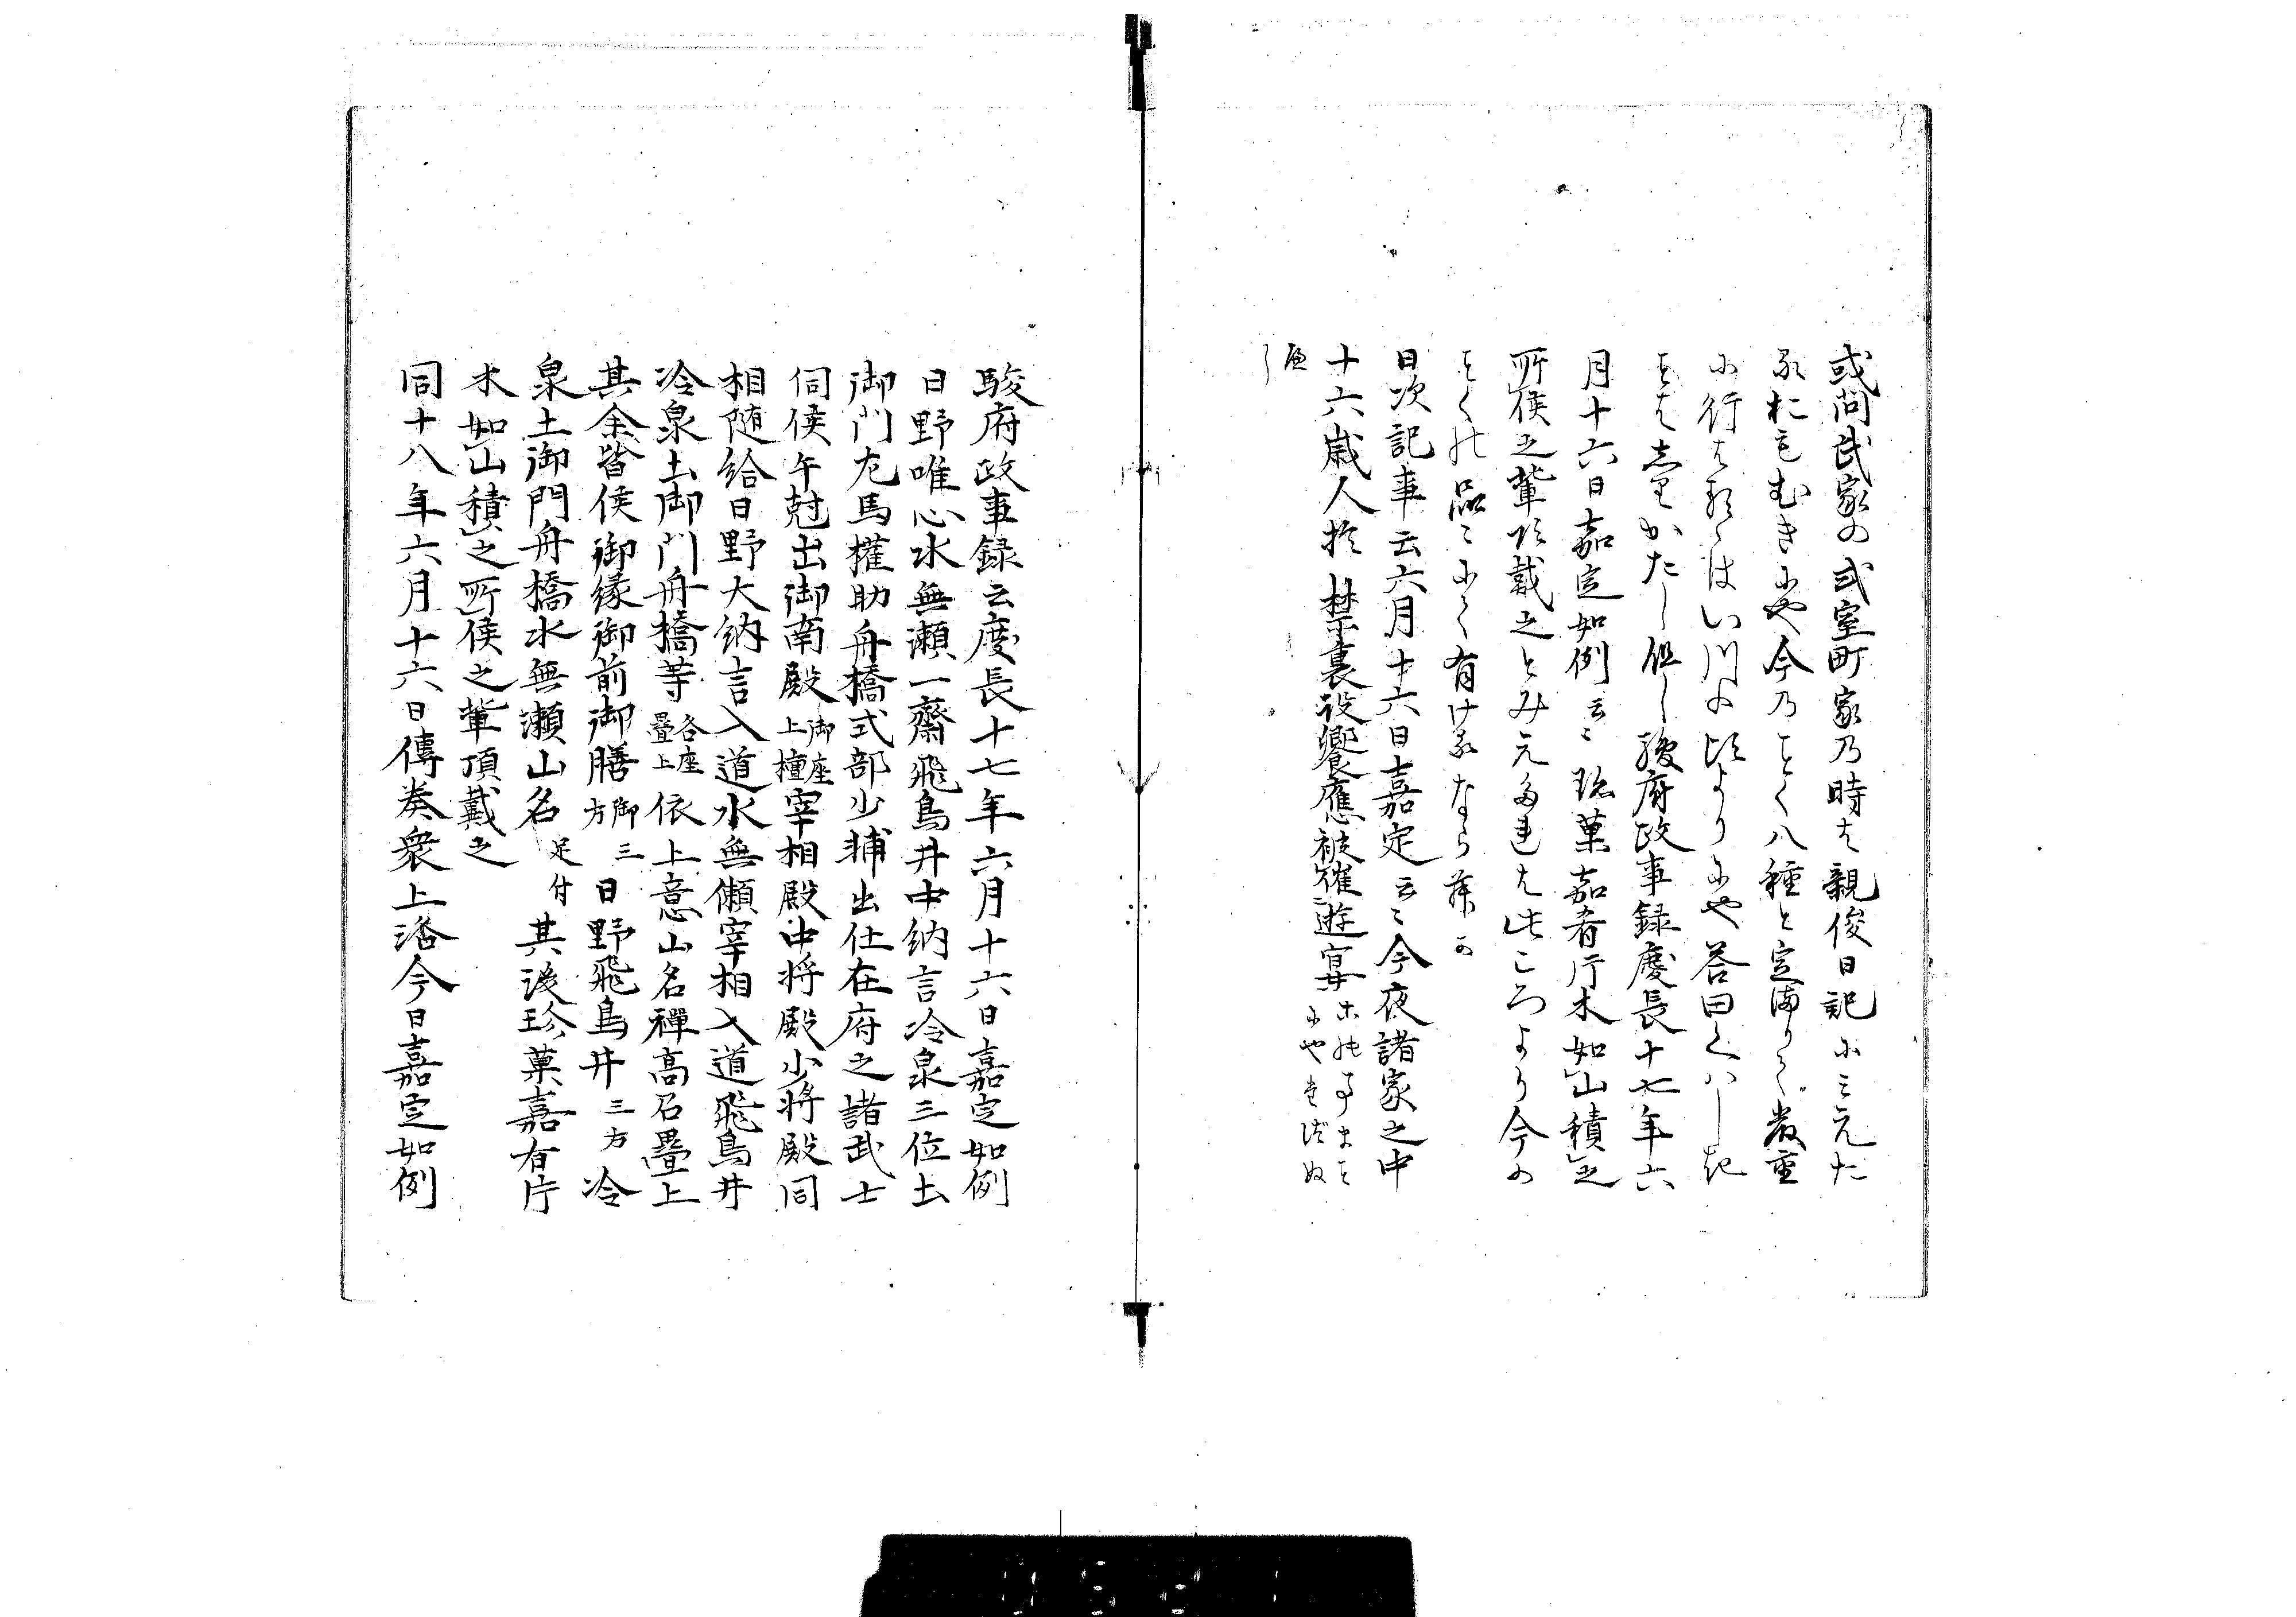 或問武家の式室町家乃時は親俊日記に見えた
るおもむきにや今乃ことく八種と定滿りて嚴重
に行はるゝはいつの比よりにや答曰くはしき
ことはしりかたし但し駿府政事録慶長十七年六
月十六日嘉定如例云々珎菓嘉肴片木如山積之
所候之輩頂戴之とみえたれは此ころより今の
ことく品々にて有けるならむか
日次記事云六月十六日嘉定云々今夜諸家之中
十六歳人於 禁裏設饗應被催遊宴
駿府政事録云慶長十七年六月十六日嘉定如例
日野唯心水無瀬一齋飛鳥井中納言冷泉三位土
御門左馬權助舟橋式部少輔出仕在府之諸武士
伺候午尅出御南殿御座上檀宰相殿中将殿少将殿同
相随給日野大納言入道水無瀬宰相入道飛鳥井
冷泉土御門舟橋等各座疊上依上意山名禪高召疊上
其余皆候御縁御前御膳御三方日野飛鳥井三方冷
泉土御門舟橋水無瀬山名足付其後珍菓嘉肴片
木如山積之所候之輩頂戴之
同十八年六月十六日傳奏衆上洛今日嘉定如例